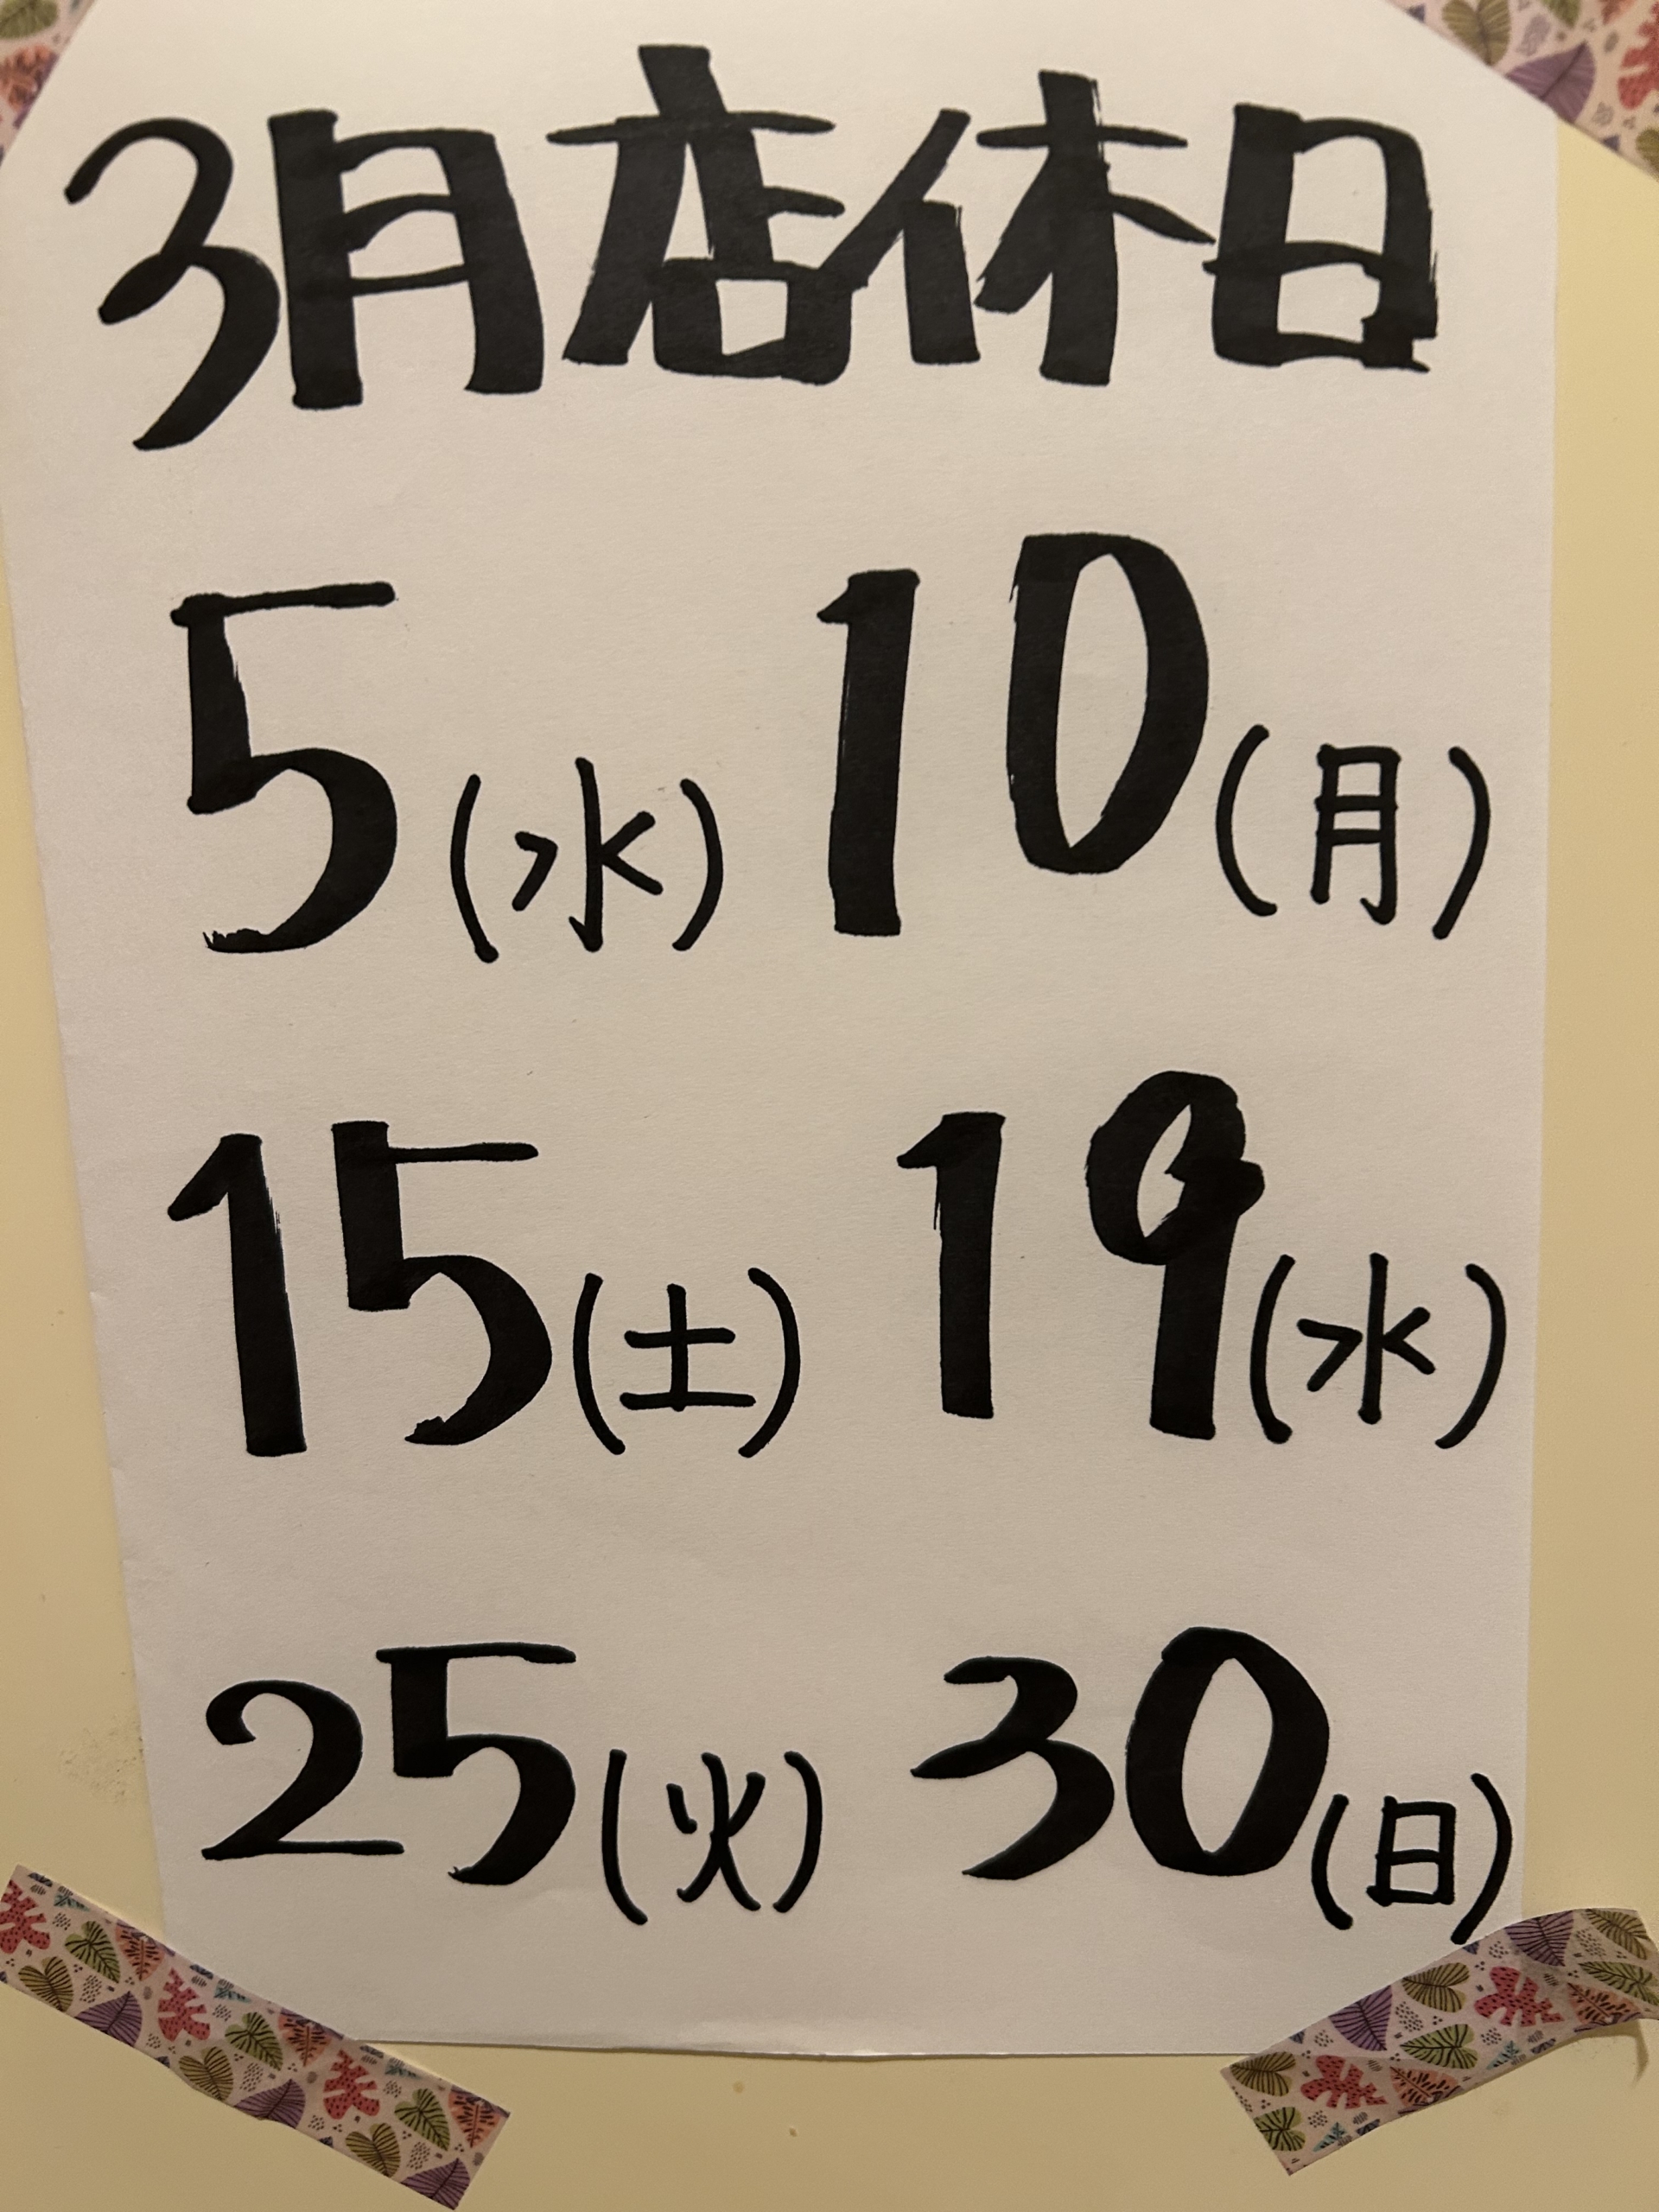 3月店休日
5(水) 10(月)
15(土) 19(水)
25(火) 30(日)